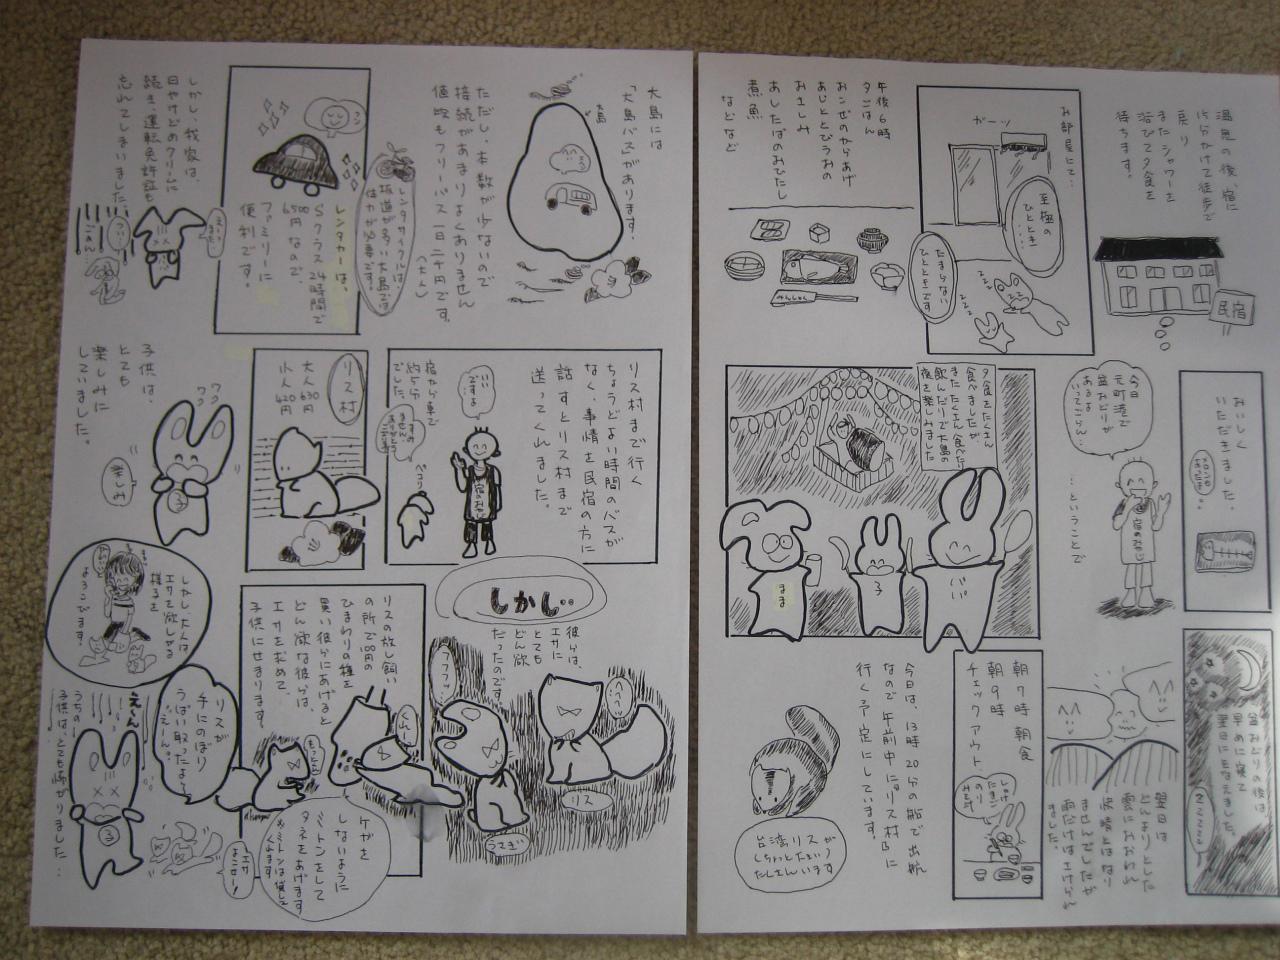 温泉の後、宿に
戻り
またシャワーを
浴びて夕食を
待ちます。
民宿
お部屋にて…
ガーッ
至極の
ひととき…
たまらない
ひとときです
zzz
zzz
午後6時
夕ごはん
おこぜのからあげ
あじととびうおの
おさしみ
あしたばのおひたし
煮魚
などなど
おいしく
いただきました。
今日
元町港で
盆おどりが
あるよ
いってごらん…
宿のおやじ
…ということで
夕食をたくさん
食べましたが
またたくさん食べたり
飲んだりで大島の
夜を楽しみました
まま
子
パパ
盆おどりの後は
早めに寝て
翌日にそなえました。
zzzzzz
翌日は
どんよりとした
雲におおわれ
ませんでしたが
雨だけは上げられ
ました。
朝7時 朝食
朝9時
チェックアウト
今日は、13時20分の船で出航
なので 午前中に「リス村」に
行く予定にしています。
台湾リスが
たくさんいます
大島には
「大島バス」があります。
大島
ただし、本数が少ないので
接続があまりよくありません
値段もフリーパス一日二千円です。
(大人)
レンタサイクルは、
坂道が多い大島では
体力が必要です。
レンタカーは、
Sクラス24時間で
6500円なので、
ファミリーに
便利です。
しかし、我家は、
日やけどめクリームに
続き、運転免許証も
忘れてしまいました。
リス村まで行く
ちょうどよい時間のバスが
なく、事情を民宿の方に
話すとリス村まで
送ってくれました。
いい
ですよ
宿のおやじ
ペコリ
宿から車で
でした。
リス村
大人630円
小人420円
子供は、
とても
楽しみに
していました。
ワクワク
楽しみ
子
しかし…
彼らは、
エサに
とても
どん欲
だったのです
うさぎ
リス
リスの放し飼い
の所で100円の
ひまわりの種を
買い彼らにあげると
どん欲な彼らは、
エサを求めて、
子供にせまります。
しかし、大人は
エサを欲しがる
様子を
よろこびます。
リスが
手にのぼり
うばい取ったよ〜
え〜ん。
ケガを
しないように
ミトンをして
タネをあげます
え〜ん
うちの
子供は、とても怖がりました…
子
エサ
よこせー!